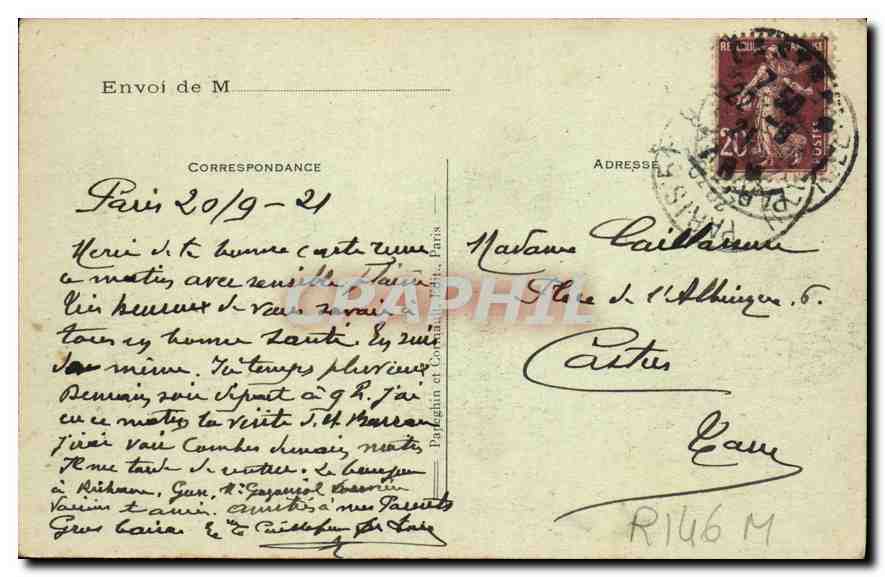 Envoi de M
REPUBLIQUE FRANÇAISE
20
POSTES
PARIS
CORRESPONDANCE
ADRESSE
Paris 20/9 - 21
Merci de ta bonne carte reçue
ce matin avec sensible plaisir
Très heureux de vous savoir à
tous en bonne santé. En suis
de même. Ici temps pluvieux
Demain soir départ à 9 h. j'ai
eu ce matin la visite d
J'irai voir Combes demain matin
Il me tarde de rentrer. Le bonjour
à
Voisins + amis. amitiés à mes Parents
Gros baisers
Madame
Place de l'Albinque. 6.
Castres
Tarn
Papeghin et Cormault, Edit., Paris
CPAPHIL
R146 M